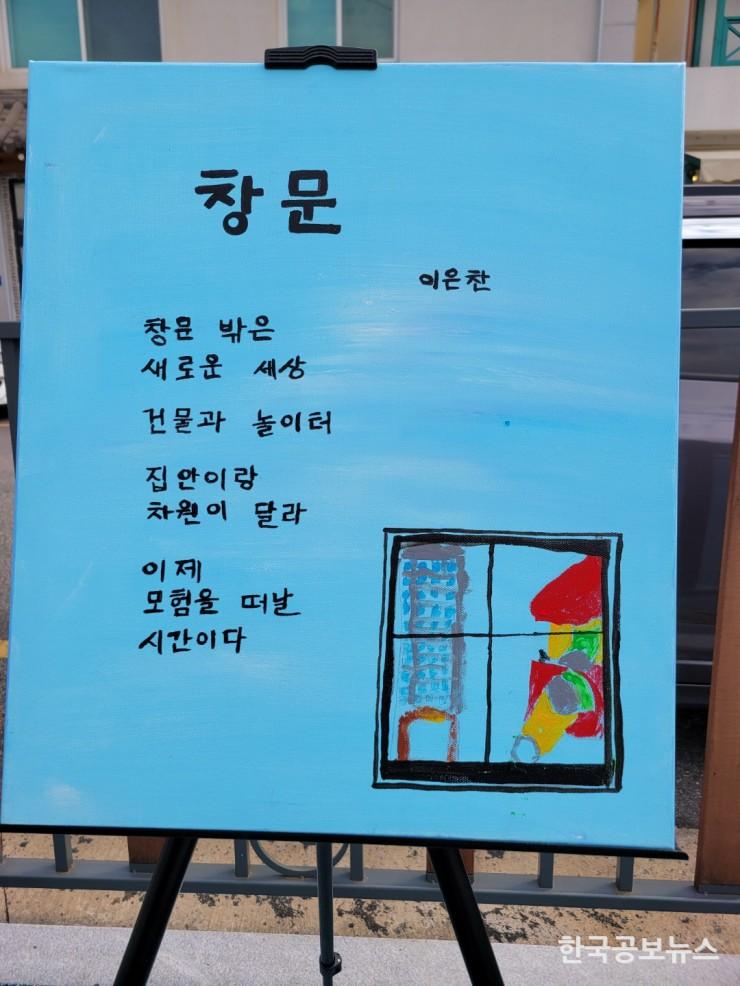 창문
이은찬
창문 밖은
새로운 세상
건물과 놀이터
집안이랑
차원이 달라
이제
모험을 떠날
시간이다
한국공보뉴스